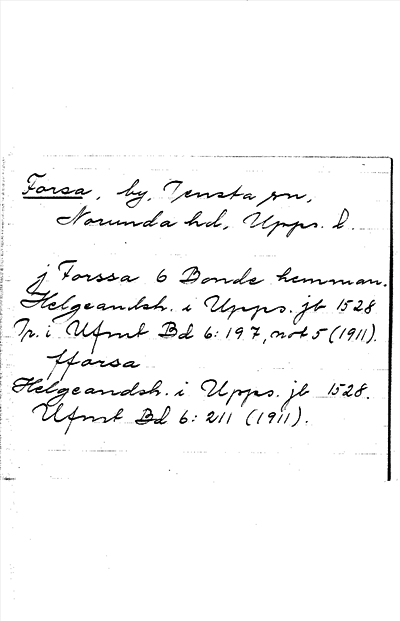 Forsa, by, Tensta sn,
Norunda hd, Upps. l.
j Forssa 6 Bonde hemman.
Helgeandsh. i Upps. jb 1528
Tr. i Ufmt Bd 6: 197, not 5 (1911).
fforsa
Helgeandsh. i Upps. jb 1528.
Ufmt Bd 6: 211 (1911).